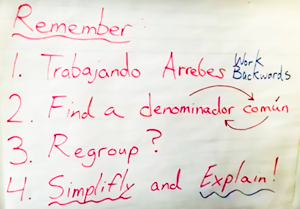 Remember:
1. Trabajando Arrebes Work Backwards
2. Find a denominador común
3. Regroup?
4. Simplifly and Explain!